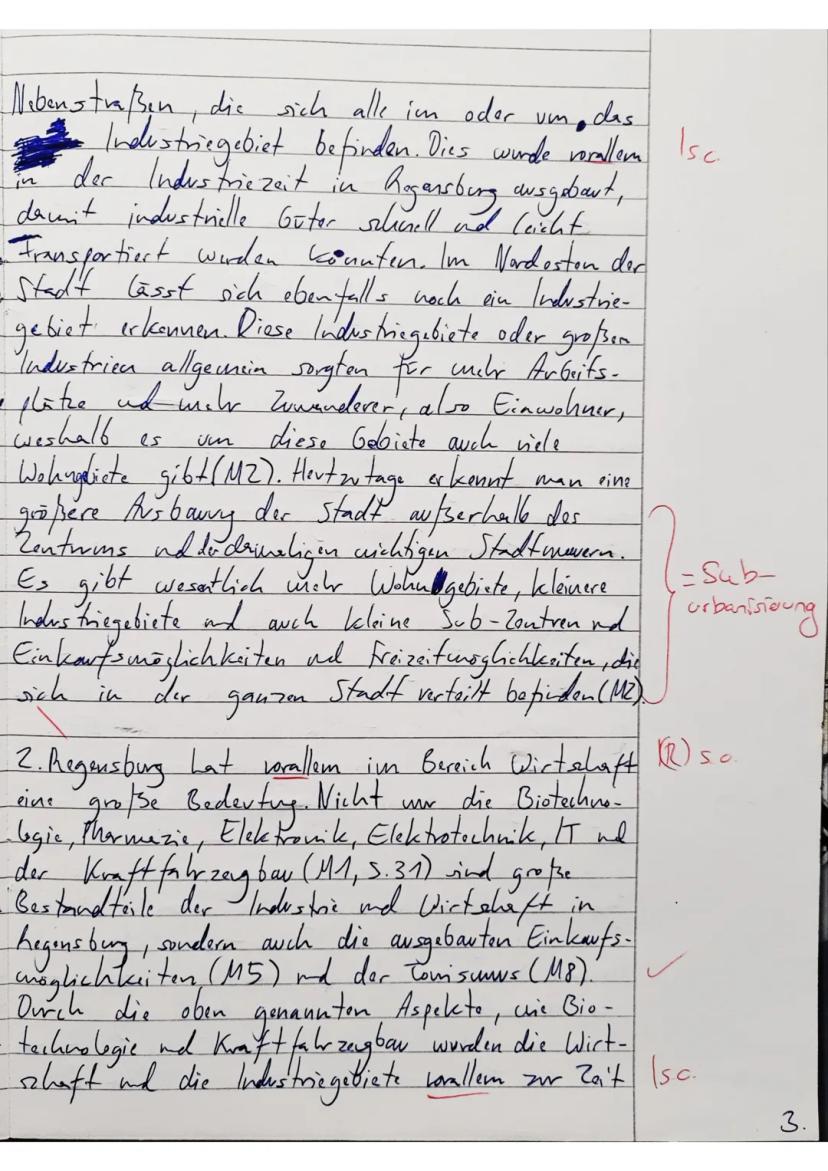 Nebenstraßen, die sich alle im oder um das
Industriegebiet befinden. Dies wurde vorallem
in der Industriezeit in Regensburg ausgebaut,
damit industrielle Güter schnell und leicht
Transportiert werden könnten. Im Nordosten der
Stadt lässt sich ebenfalls noch ein Industrie-
gebiet erkennen. Diese Industriegebiete oder großen
Industrien allgemein sorgten für mehr Arbeits-
plätze und mehr Zuwanderer, also Einwohner,
weshalb es um diese Gebiete auch viele
Wohngebiete gibt (M2). Heutzutage erkennt man eine
größere Ausbauung der Stadt außerhalb des
Zentrums und der damaligen wichtigen Stadtmauern.
Es gibt wesentlich mehr Wohngebiete, kleinere
Industriegebiete und auch kleine Sub-Zentren und
Einkaufsmöglichkeiten und Freizeitmöglichkeiten, die
sich in der ganzen Stadt verteilt befinden (M2).
2. Regensburg hat vorallem im Bereich Wirtschaft
eine große Bedeutung. Nicht nur die Biotechno-
logie, Pharmazie, Elektronik, Elektrotechnik, IT und
der Kraftfahrzeugbau (M1, S.31) sind große
Bestandteile der Industrie und Wirtschaft in
Regensburg, sondern auch die ausgebauten Einkaufs-
möglichkeiten (M5) und der Tourismus (M8).
Durch die oben genannten Aspekte, wie Bio-
technologie und Kraftfahrzeugbau wurden die Wirt-
schaft und die Industriegebiete vorallem zur Zeit
ls.o.
= Sub-
urbanisierung
(R) s.o.
ls.o.
3.